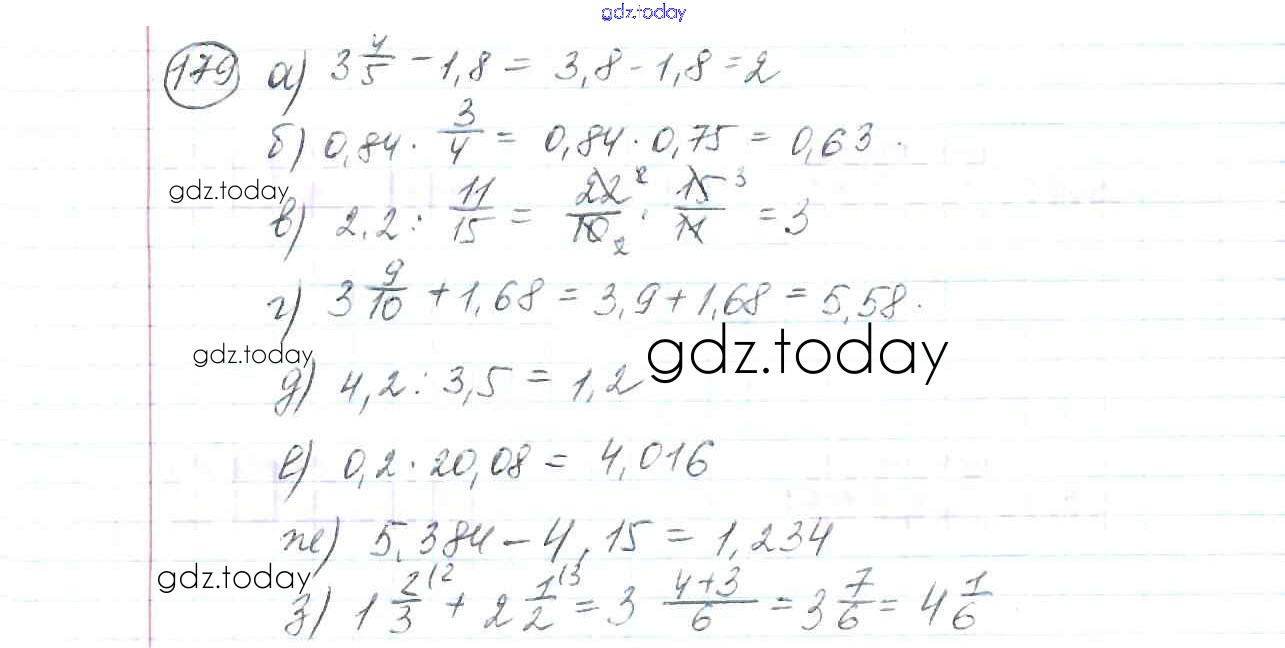 gdz.today
179 а) 3 4/5 - 1,8 = 3,8 - 1,8 = 2
б) 0,84 · 3/4 = 0,84 · 0,75 = 0,63.
gdz.today
в) 2,2 : 11/15 = 22/10 · 15/11 = 3
2 3 2
г) 3 9/10 + 1,68 = 3,9 + 1,68 = 5,58.
gdz.today
gdz.today
д) 4,2 : 3,5 = 1,2
е) 0,2 · 20,08 = 4,016
ж) 5,384 - 4,15 = 1,234
gdz.today
з) 1 2/3 (2 + 2 1/2 (3 = 3 4+3/6 = 3 7/6 = 4 1/6